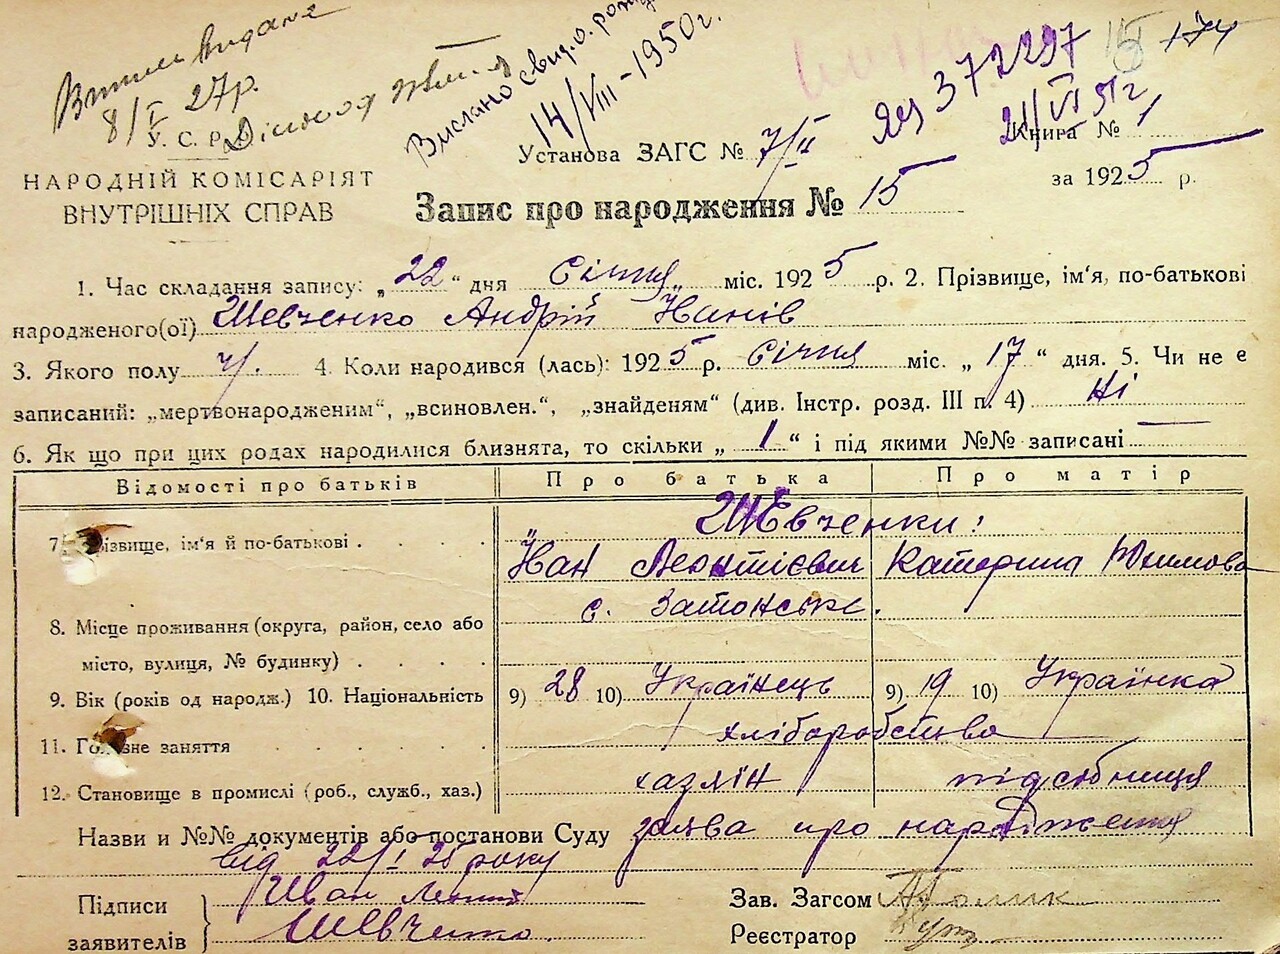 Витяг видано
8/I 27р.
Вислано свид. о рожд
14/VIII-1950г.
ЯЕ 372297
21/VI 51г.
174
У. С. Р. Р.
НАРОДНІЙ КОМІСАРІЯТ
ВНУТРІШНІХ СПРАВ
Установа ЗАГС № 7/II
Книга № 1
за 1925 р.
Запис про народження № 15
1. Час складання запису: „22“ дня Січня міс. 1925 р. 2. Прізвище, ім'я, по-батькові
народженого(ої) Шевченко Андрій Іванів
3. Якого полу ч. 4. Коли народився (лась): 1925 р. Січня міс. „17“ дня. 5. Чи не є
записаний: „мертвонародженим“, „всиновлен.“, „знайденям“ (див. Інстр. розд. III п. 4) Ні
6. Як що при цих родах народилися близнята, то скільки „1“ і під якими №№ записані —
Відомості про батьків Про батька Про матір
Шевченки:
7. Прізвище, ім'я й по-батькові Іван Леонтієвич Катерина Юхимова
с. Затонське.
8. Місце проживання (округа, район, село або
місто, вулиця, № будинку)
9. Вік (років од народж.) 10. Національність 9) 28 10) Українець 9) 19 10) Українка
11. Головне заняття хліборобство
12. Становище в промислі (роб., служб., хаз.) хазяїн підсобниця
Назви и №№ документів або постанови Суду заява про народження
від 22/I 25 року
Підписи Іван
заявителів Шевченко
Зав. Загсом
Реєстратор